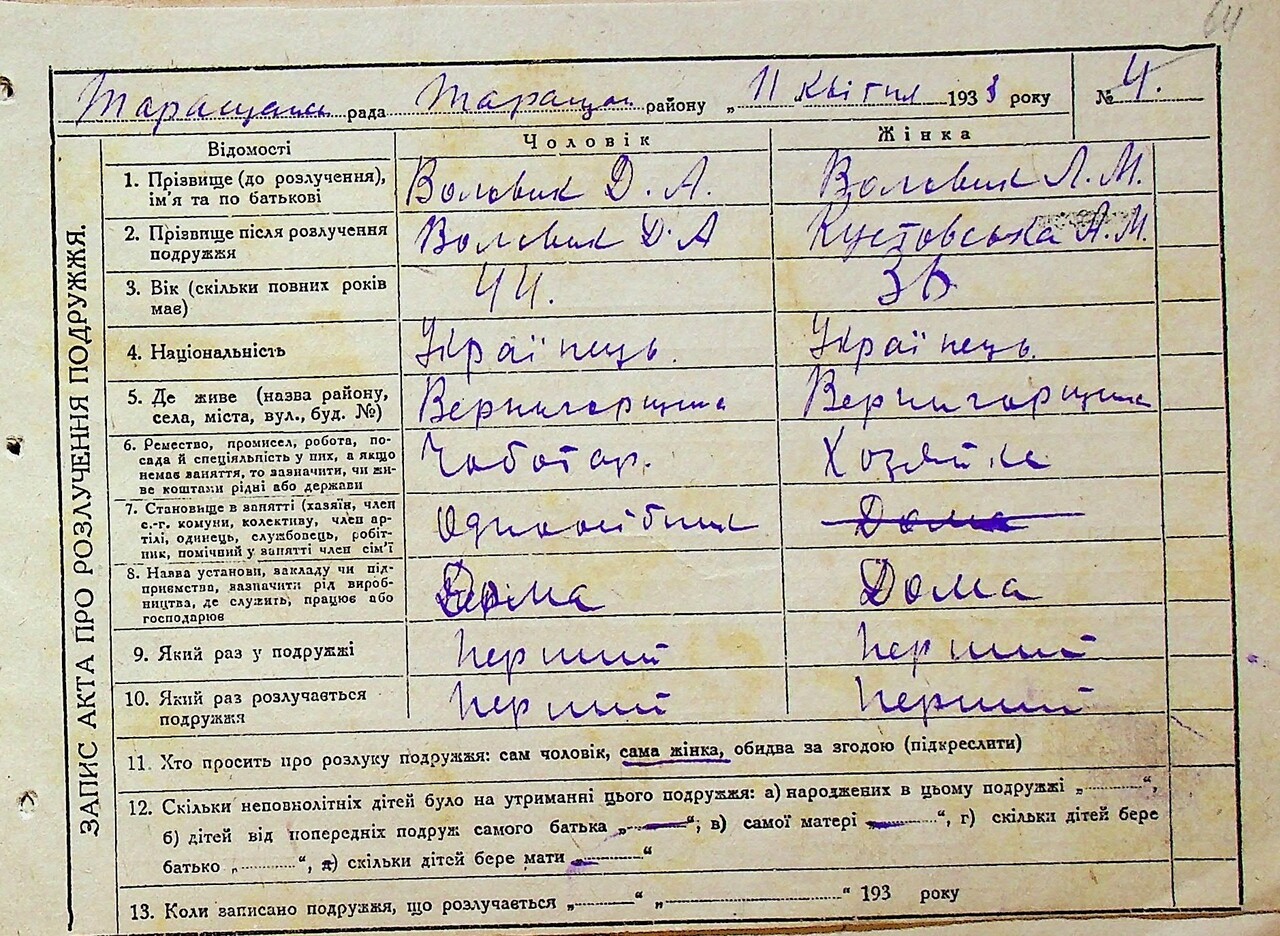 64
Таращан. рада Таращан. району „ 11 квітня 1933 року № 4.
ЗАПИС АКТА ПРО РОЗЛУЧЕННЯ ПОДРУЖЖЯ.
Відомості Чоловік Жінка
1. Прізвище (до розлучення), ім'я та по батькові Воловик Д. А. Воловик Л. М.
2. Прізвище після розлучення подружжя Воловик Д. А Кустовська Л. М.
3. Вік (скільки повних років має) 44.
4. Національність Українець. Українець.
5. Де живе (назва району, села, міста, вул., буд. №) Вернигорщина Вернигорщина
6. Ремество, промисел, робота, по-
сада й спеціяльність у них, а якщо
немає заняття, то зазначити, чи жи-
ве коштами рідні або держави Чоботар. Хозяйка
7. Становище в занятті (хазяїн, член
с.-г. комуни, колективу, член ар-
тілі, одинець, службовець, робіт-
ник, помічний у занятті член сім'ї Одноосібник Дома
8. Назва установи, закладу чи під-
приємства, зазначити рід вироб-
ництва, де служить, працює або
господарює Дома Дома
9. Який раз у подружжі перший перший
10. Який раз розлучається подружжя перший перший
11. Хто просить про розлуку подружжя: сам чоловік, сама жінка, обидва за згодою (підкреслити)
12. Скільки неповнолітніх дітей було на утриманні цього подружжя: а) народжених в цьому подружжі „..........“,
б) дітей від попередніх подруж самого батька „..........“; в) самої матері „..........“, г) скільки дітей бере
батько „..........“, д) скільки дітей бере мати „..........“
13. Коли записано подружжя, що розлучається „..........“ „....................“ 193 року